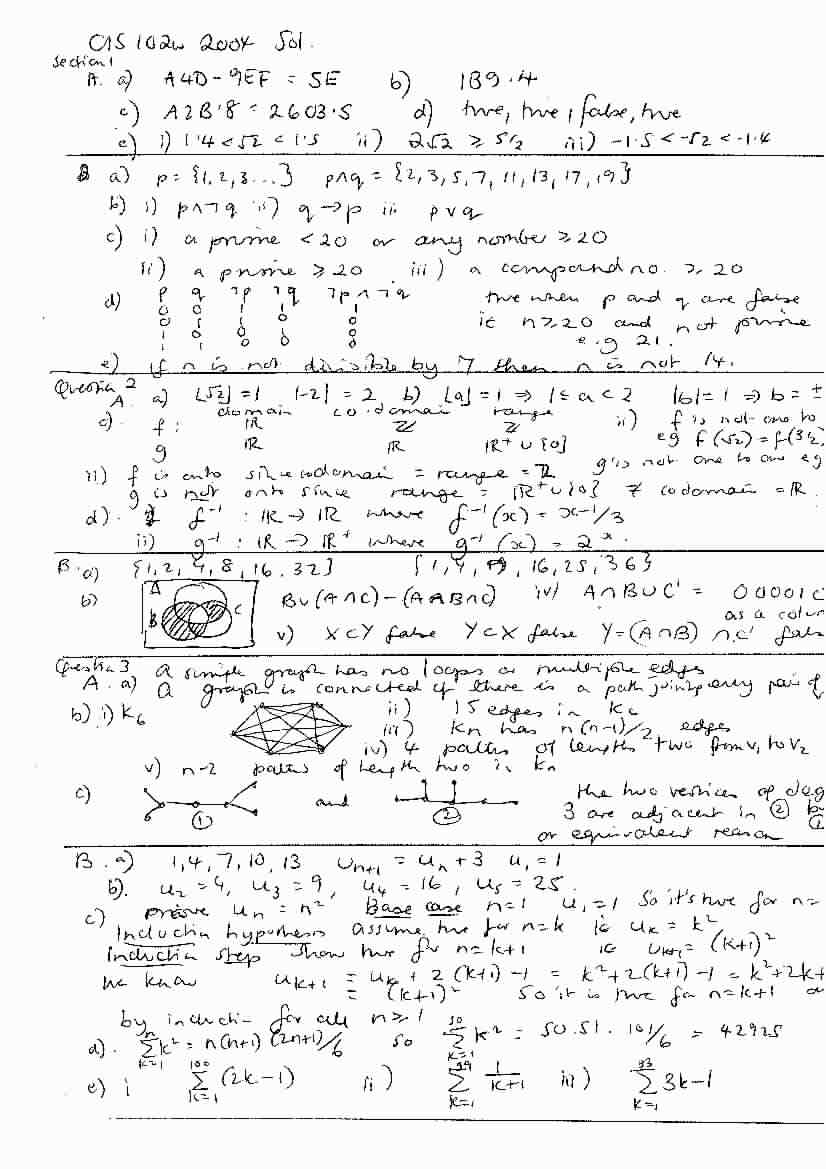 CIS 102w 2004 Sol.
Section 1
A. a) A4D - 9EF = 5E b) 1B9.4
c) A2B.8 = 2603.5 d) true, true, false, true
e) i) 1.4 < √2 < 1.5 ii) 2√2 ≥ 5/2 iii) -1.5 < -√2 < -1.4
B a) p = {1, 2, 3 ...} p∧q = {2, 3, 5, 7, 11, 13, 17, 19}
b) i) p∧¬q ii) q→p iii p∨q
c) i) a prime < 20 or any number ≥ 20
ii) a prime ≥ 20 iii) a compound no. ≥ 20
d) p q ¬p ¬q ¬p∧¬q true when p and q are false
0 0 1 1 1 ie n ≥ 20 and not prime
0 1 1 0 0 e.g 21.
1 0 0 1 0
1 1 0 0 0
e) If n is not divisible by 7 then n is not 14.
Question 2
A. a) ⌊√2⌋ = 1 |-2| = 2, b) ⌊a⌋ = 1 ⇒ 1 ≤ a < 2 |b| = 1 ⇒ b = ±
c) domain co.domain range
f: ℝ ℤ ℤ ii) f is not one to
g ℝ ℝ ℝ⁺∪{0} eg f(√2) = f(3/2
g is not one to one eg
ii) f is onto since codomain = range = ℤ
g is not onto since range = ℝ⁺∪{0} ≠ codomain = ℝ.
d). f⁻¹ : ℝ → ℝ where f⁻¹(x) = x-1/3
ii) g⁻¹ : ℝ → ℝ⁺ where g⁻¹(x) = 2ˣ.
B. a) {1, 2, 4, 8, 16, 32} {1, 4, 9, 16, 25, 36}
b) A B C B∪(A∩C) - (A∩B∩C) iv) A∩B∪C' = 00001
as a colu
v) X⊂Y false Y⊂X false Y = (A∩B)∩C' fals
Question 3
A. a) A simple graph has no loops or multiple edges
A graph is connected if there is a path joining every pair of
b) i) K₆ ii) 15 edges in K₆
iii) Kn has n(n-1)/2 edges
iv) 4 paths of length two from v₁ to v₂
v) n-2 paths of length two in Kn
c) ① and ② the two vertices of deg
3 are adjacent in ② b
①
or equivalent reason
B. a) 1, 4, 7, 10, 13 uₙ₊₁ = uₙ + 3 u₁ = 1
b). u₂ = 4, u₃ = 9, u₄ = 16, u₅ = 25.
c) prove uₙ = n² Base case n=1 u₁ = 1 So it's true for n=
Induction hypothesis assume true for n=k ie uₖ = k²
Induction step Show true for n=k+1 ie uₖ₊₁ = (k+1)²
we know uₖ₊₁ = uₖ + 2(k+1) - 1 = k²+2(k+1)-1 = k²+2k+
= (k+1)² So it is true for n=k+1
by induction for all n ≥ 1
d). ∑ₖ₌₁ⁿ k² = n(n+1)(2n+1)/6 so ∑ₖ₌₁⁵⁰ k² = 50.51.101/6 = 42925
e) i ∑ₖ₌₁¹⁰⁰ (2k-1) ii) ∑ₖ₌₁⁹⁹ 1/(k+1) iii) ∑ₖ₌₁³³ 3k-1